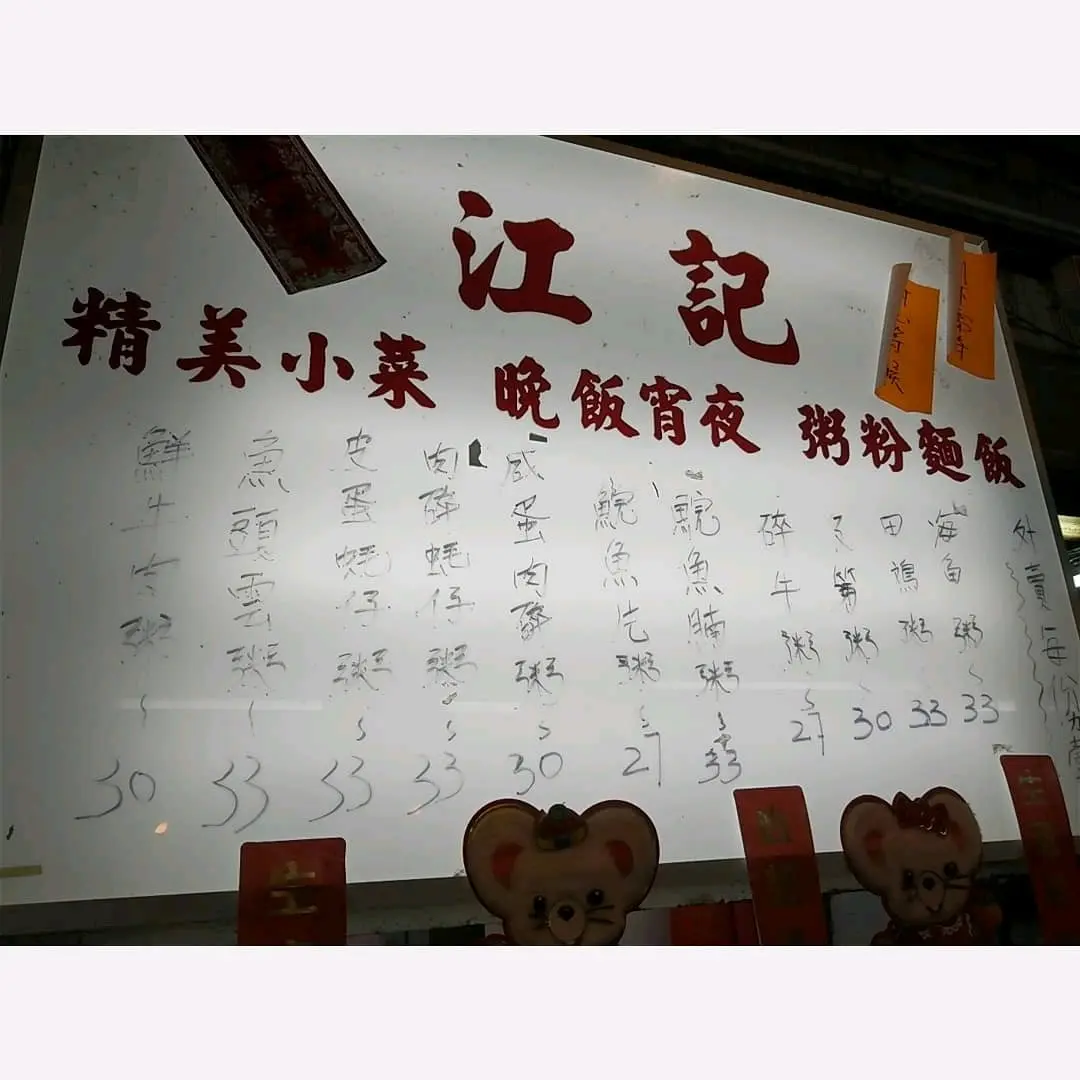 江記
精美小菜 晚飯宵夜 粥粉麵飯
外賣每份加壹
粥~33
田鷄粥~33
及第粥~30
碎牛粥~27
鯇魚腩粥~33
鯇魚片粥~27
咸蛋肉碎粥~30
肉碎蚝仔粥~33
皮蛋蚝仔粥~33
魚頭雲粥~33
鮮牛肉粥~30